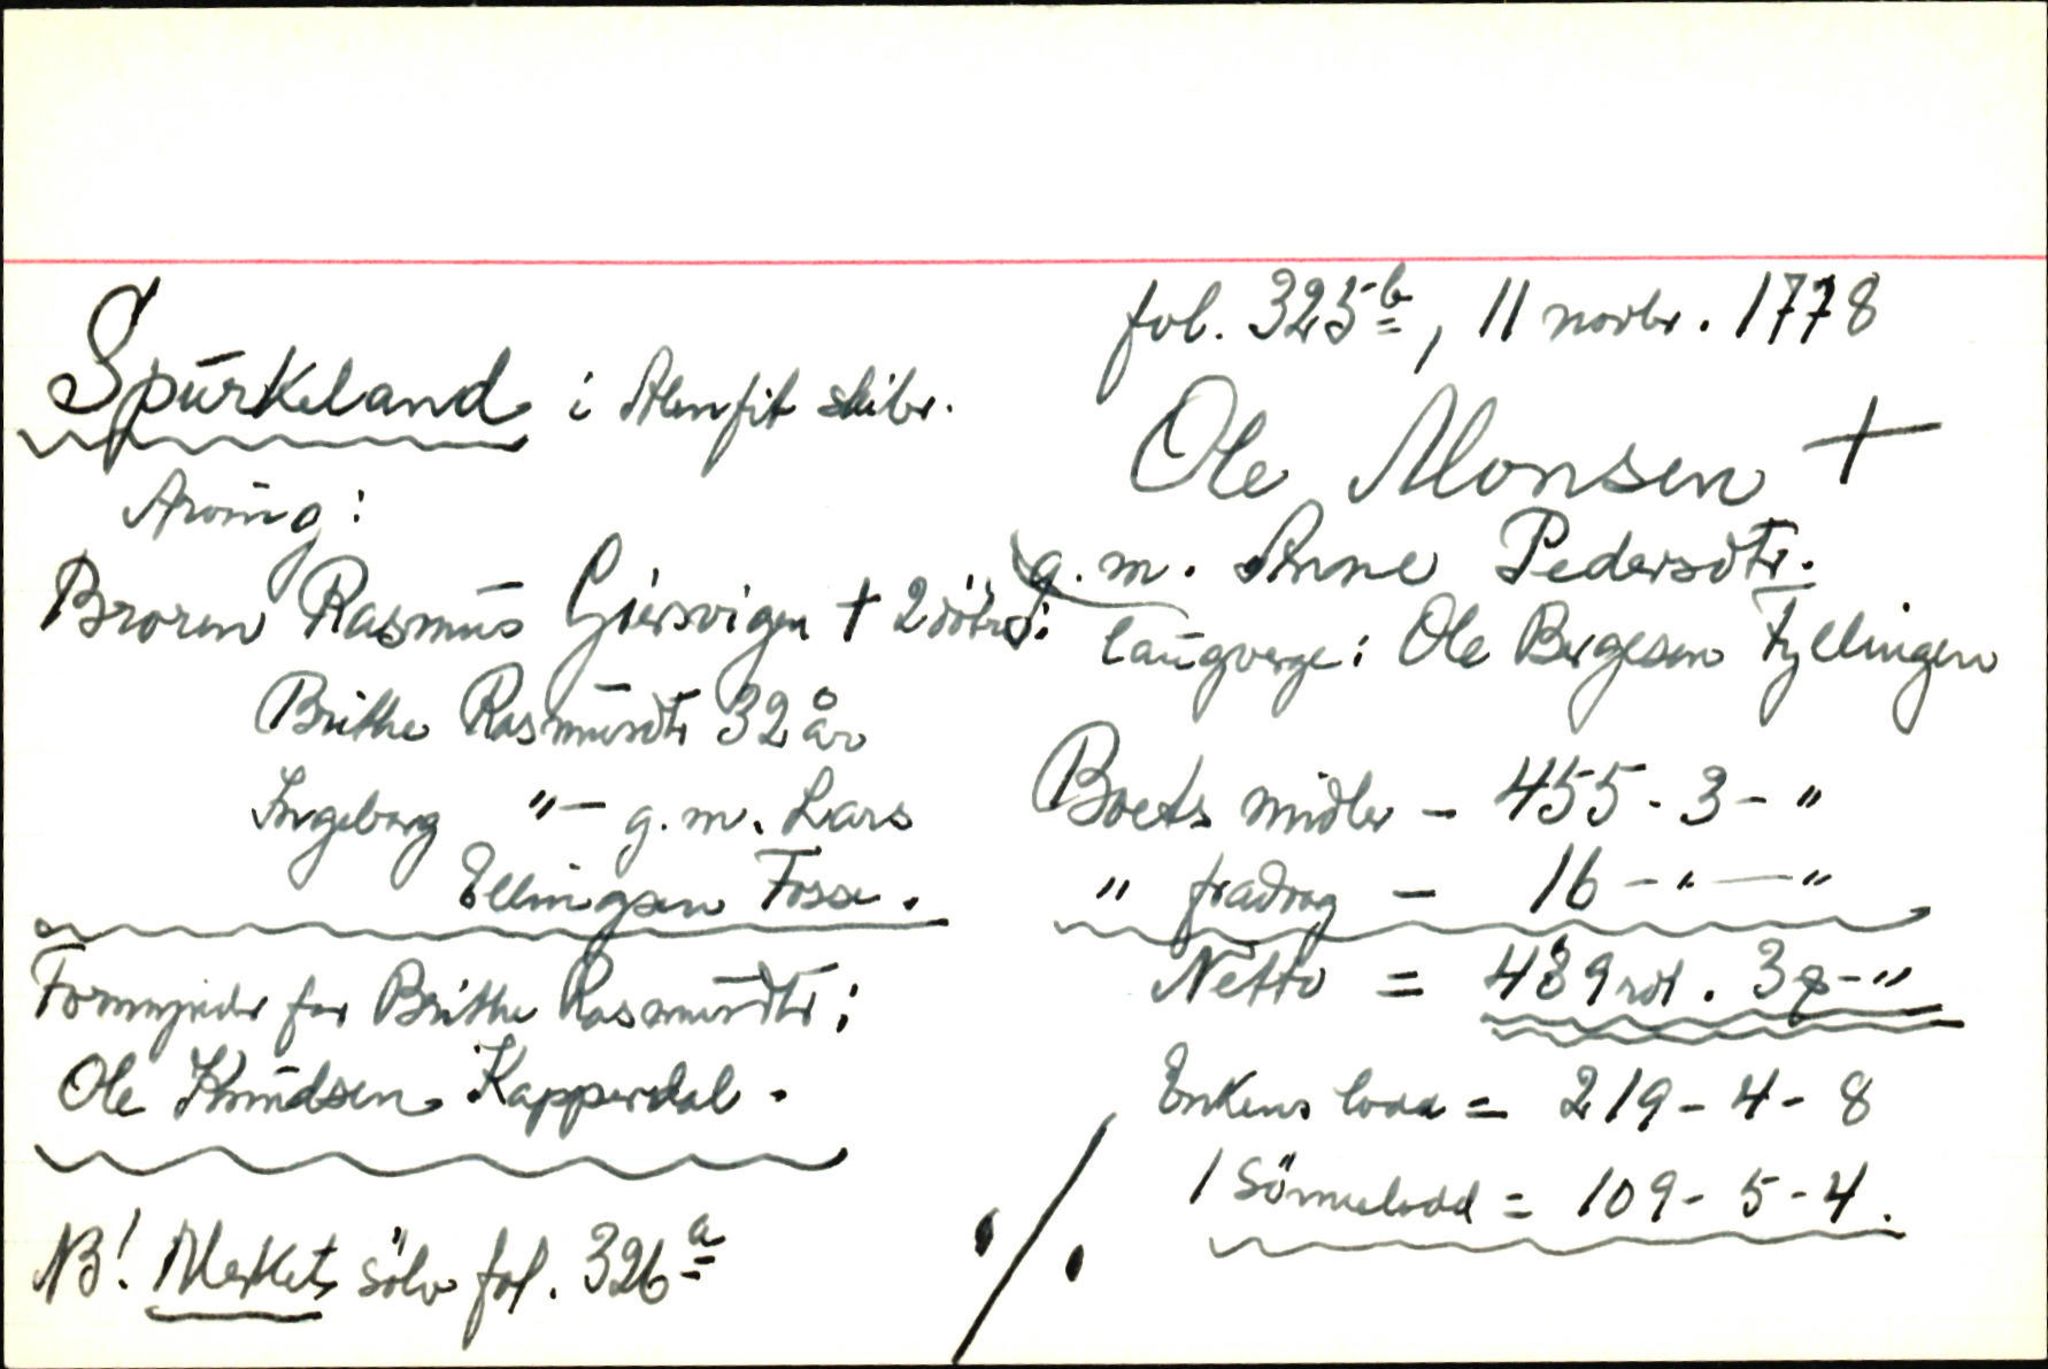 Spurkeland i Alenfit skibr.
Arving:
Broren Rasmus Giersvigen + 2 döbrs:
Brithe Rasmusdtr 32 år
Ingeborg "— g. m. Lars
Ellingsen Fosse.
Formynder for Brithe Rasmusdtr:
Ole Knudsen Kapperdal.
NB! Merket sölv fol. 326a
fol. 325b, 11 novbr. 1778
Ole Monsen +
g. m. Anne Pedersdtr.
laugverge: Ole Bergesen Fyllingen
Boets midler - 455-3-"
" fradrag - 16-"-"
Netto = 439 rdl. 3 -"
Enkens lodd = 219-4-8
1 Sönnelodd = 109-5-4.
./.